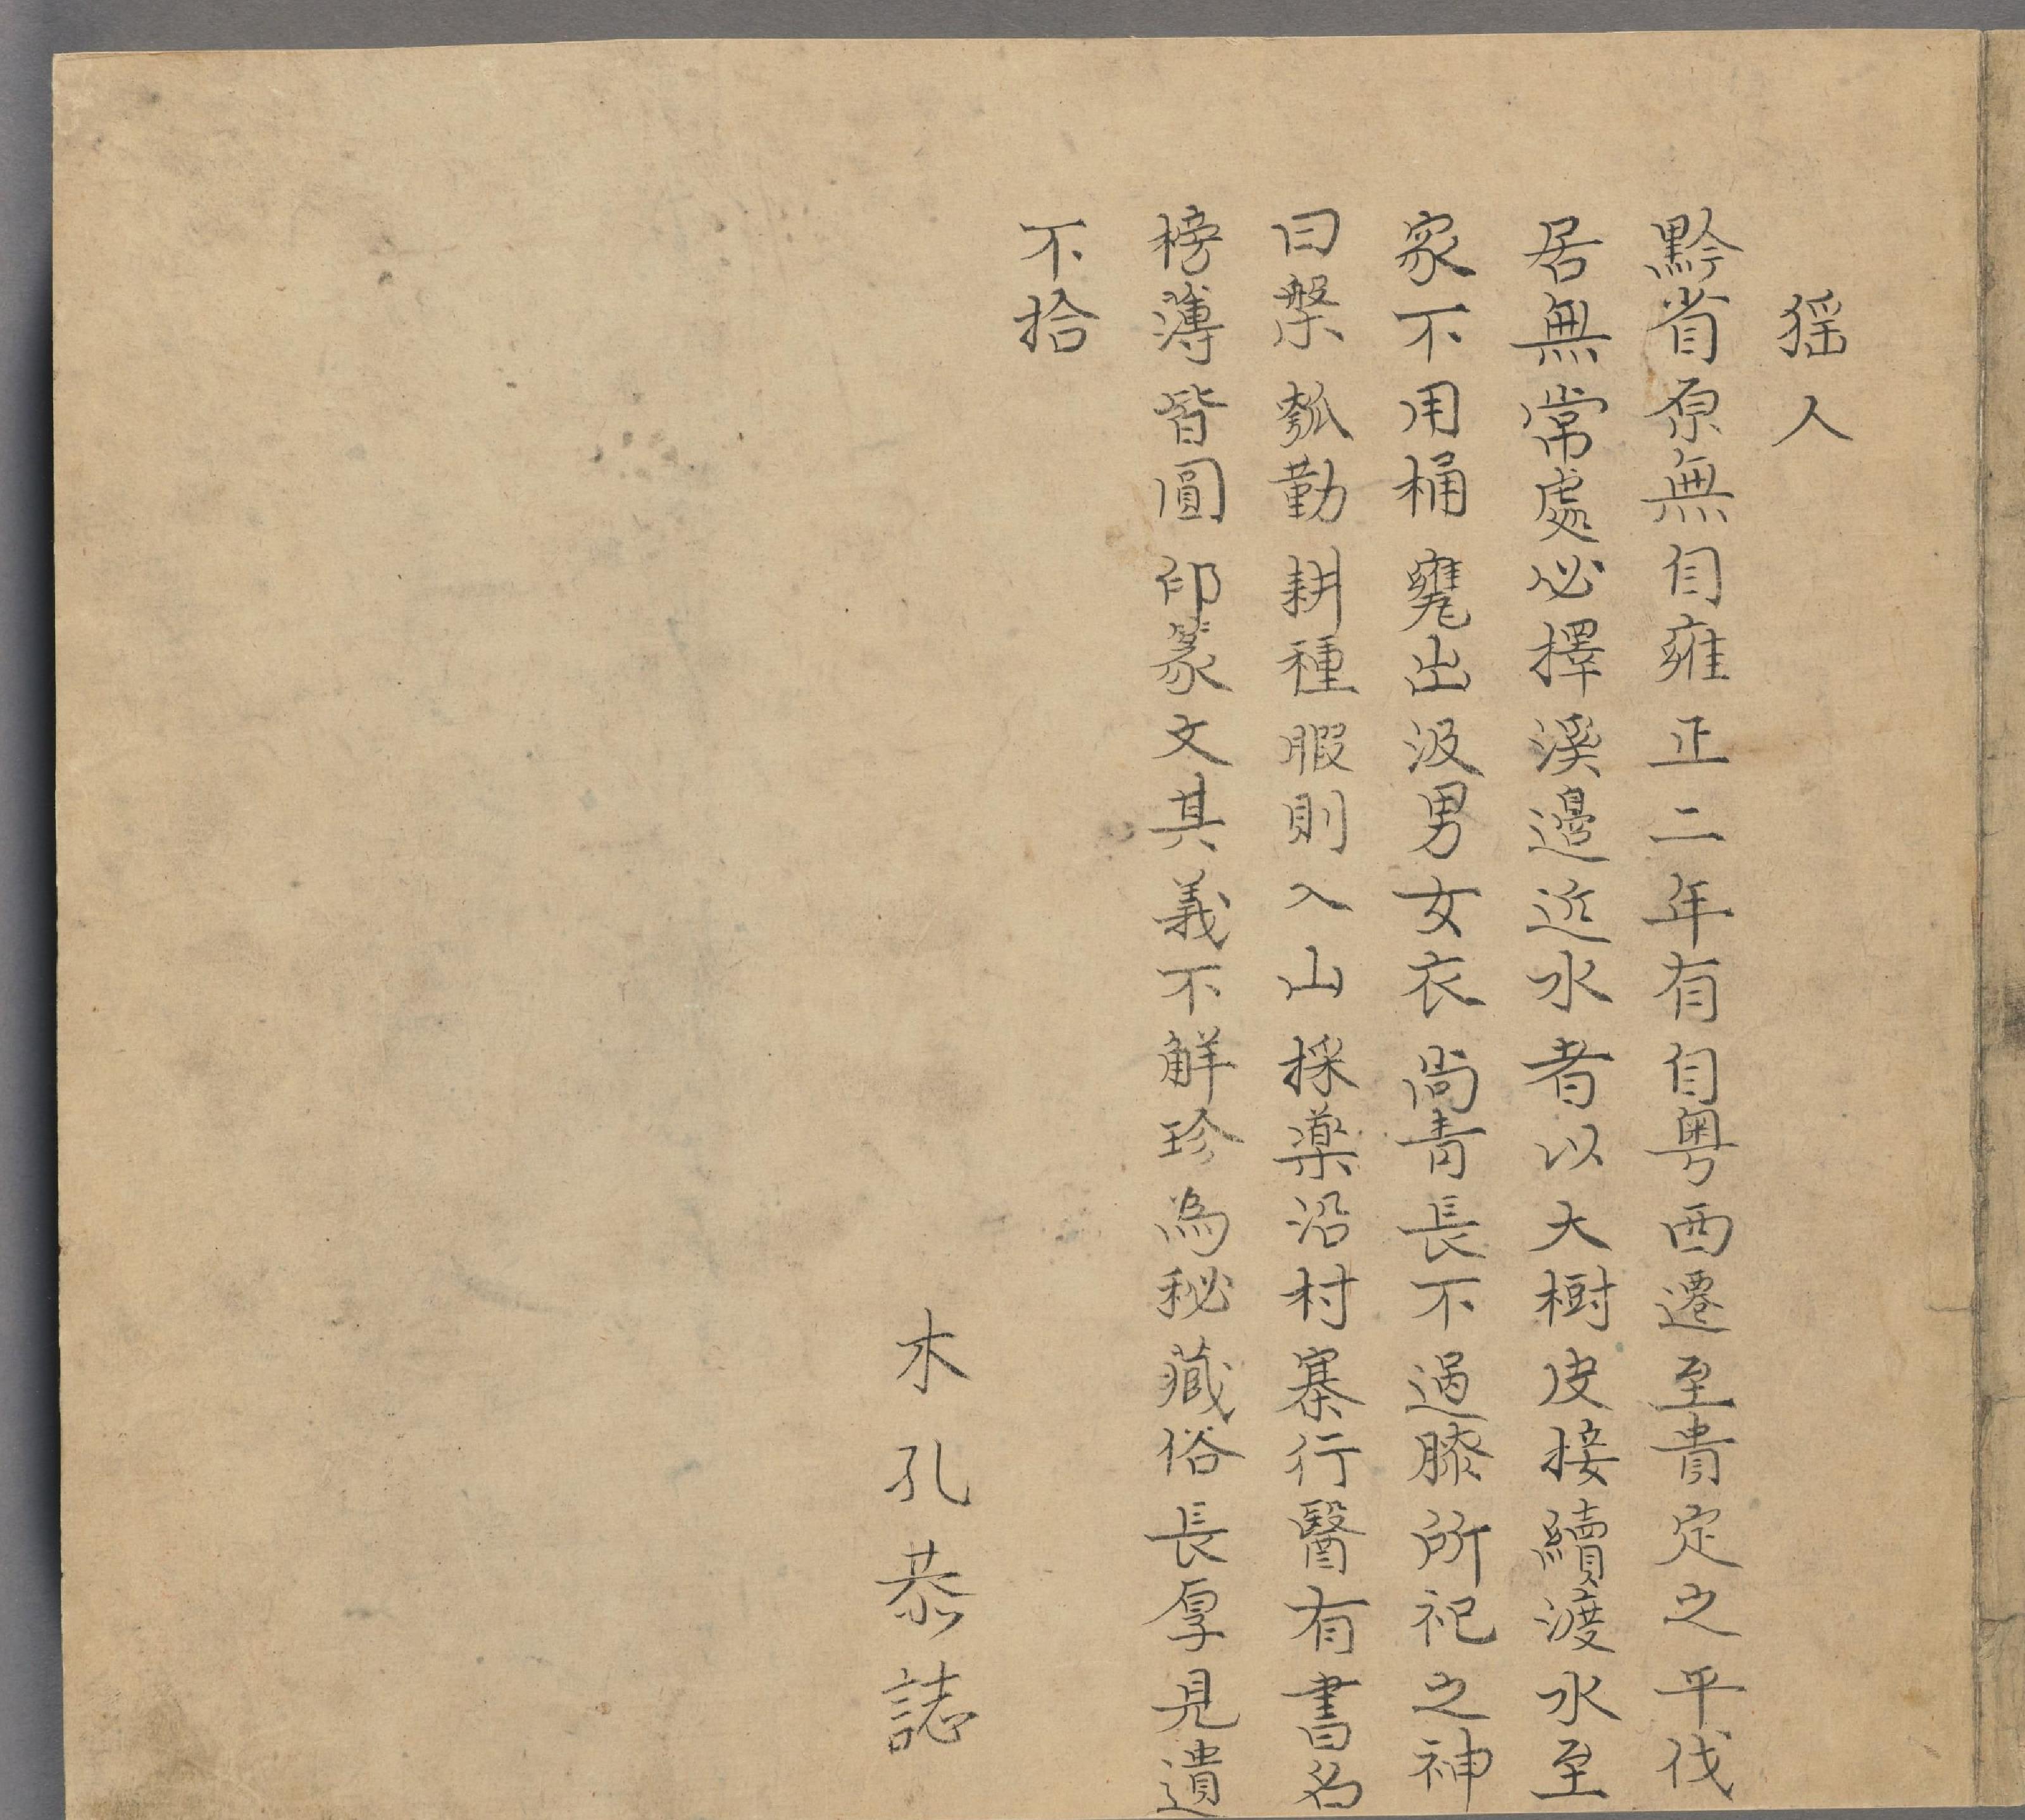 猺人
黔省原無自雍正二年有自粤西遷至貴定之平伐
居無常處必擇溪邊近水者以大樹皮接續渡水至
家不用桶甕出汲男女衣尚青長不過膝所祀之神
曰槃瓠勤耕種暇則入山採藥沿村寨行醫有書名
榜簿皆圓印篆文其義不解珍為秘藏俗長厚見遺
不拾
木孔恭誌